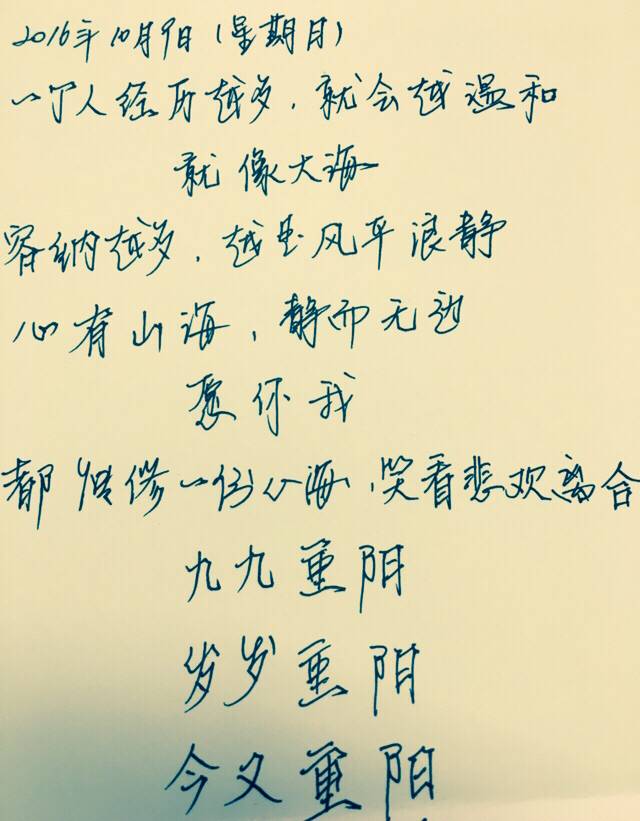 2016年10月9日(星期日)
一个人经历越多,就会越温和
就像大海
容纳越多,越是风平浪静
心有山海,静而无边
愿你我
都 修一份心海,笑看悲欢离合
九九重阳
岁岁重阳
今又重阳